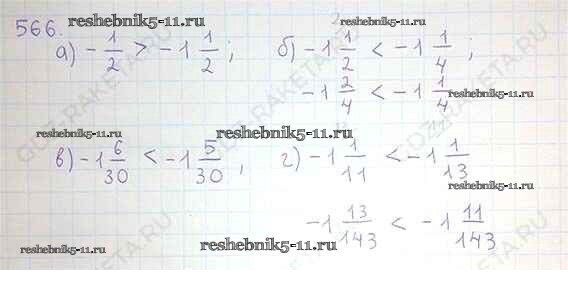 566.
reshebnik5-11.ru
а) -1/2 > -1 1/2; б) -1 1/2 < -1 1/4;
-1 2/4 < -1 1/4
reshebnik5-11.ru
reshebnik5-11.ru
reshebnik5-11.ru
в) -1 6/30 < -1 5/30, г) -1 1/11 < -1 1/13
reshebnik5-11.ru
-1 13/143 < -1 11/143
reshebnik5-11.ru
reshebnik5-11.ru
GDZ-RAKETA.RU
GDZ-RAKETA.RU
GDZ-RAKETA.RU